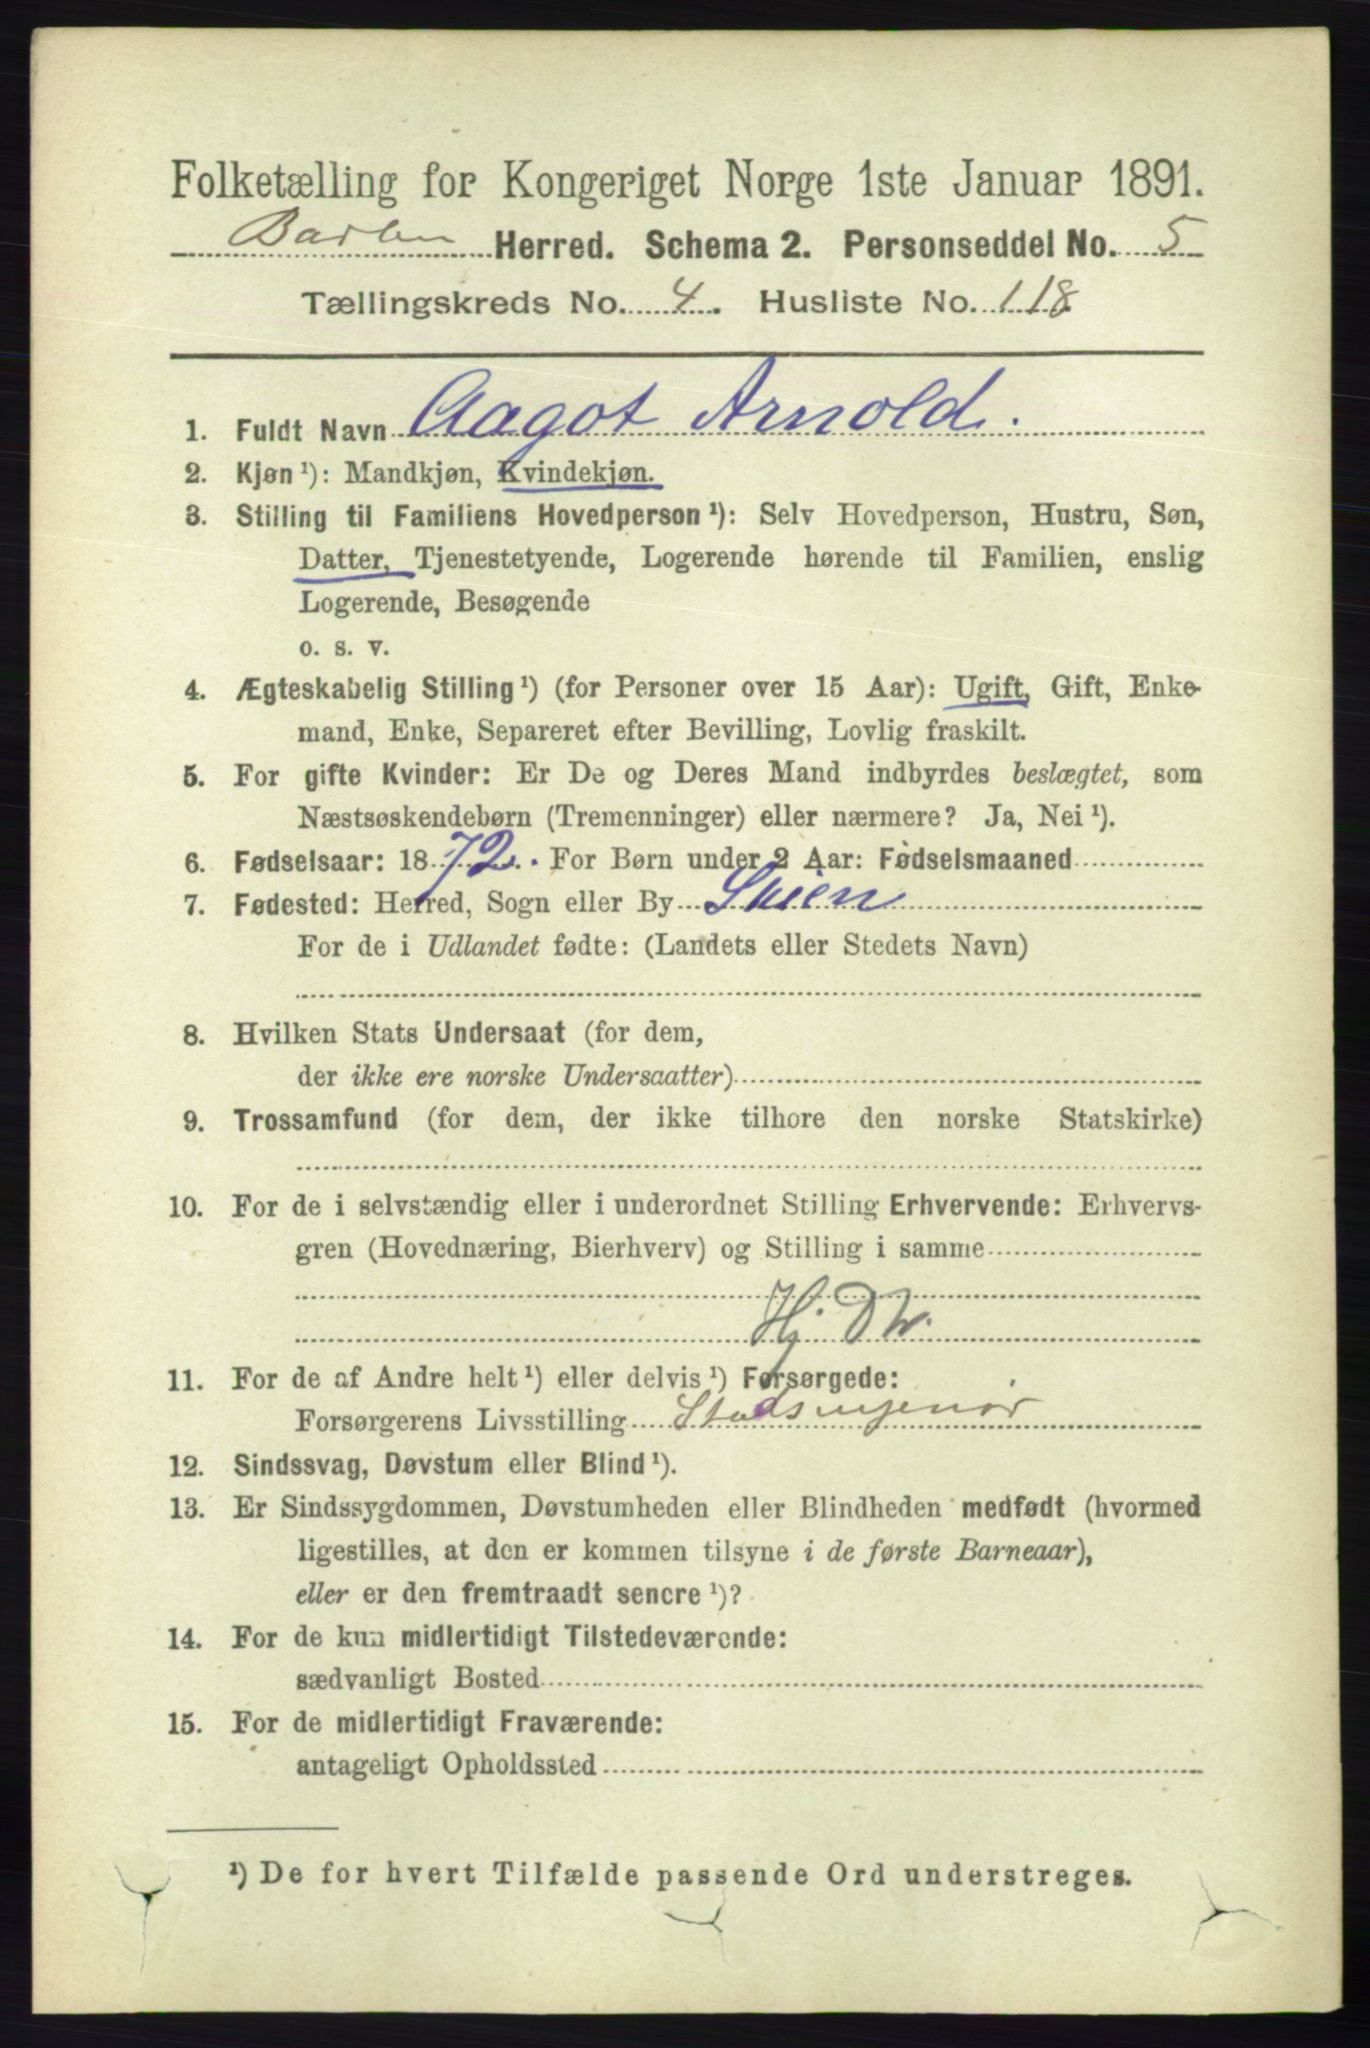 Folketælling for Kongeriget Norge 1ste Januar 1891.
Herred. Schema 2. Personseddel No. 5
Tællingskreds No. 4. Husliste No. 118
1. Fuldt Navn Aagot Arnold.
2. Kjøn ¹): Mandkjøn, Kvindekjøn.
3. Stilling til Familiens Hovedperson ¹): Selv Hovedperson, Hustru, Søn,
Datter, Tjenestetyende, Logerende hørende til Familien, enslig
Logerende, Besøgende
o. s. v.
4. Ægteskabelig Stilling ¹) (for Personer over 15 Aar): Ugift, Gift, Enke-
mand, Enke, Separeret efter Bevilling, Lovlig fraskilt.
5. For gifte Kvinder: Er De og Deres Mand indbyrdes beslægtet, som
Næstsøskendebørn (Tremenninger) eller nærmere? Ja, Nei ¹).
6. Fødselsaar: 1872. For Børn under 2 Aar: Fødselsmaaned
7. Fødested: Herred, Sogn eller By Skien
For de i Udlandet fødte: (Landets eller Stedets Navn)
8. Hvilken Stats Undersaat (for dem,
der ikke ere norske Undersaatter)
9. Trossamfund (for dem, der ikke tilhøre den norske Statskirke)
10. For de i selvstændig eller i underordnet Stilling Erhvervende: Erhvervs-
gren (Hovednæring, Bierhverv) og Stilling i samme
Hj
11. For de af Andre helt ¹) eller delvis ¹) Forsørgede:
Forsørgerens Livsstilling Stadsingeniør
12. Sindssvag, Døvstum eller Blind ¹).
13. Er Sindssygdommen, Døvstumheden eller Blindheden medfødt (hvormed
ligestilles, at den er kommen tilsyne i de første Barneaar),
eller er den fremtraadt senere ¹)?
14. For de kun midlertidigt Tilstedeværende:
sædvanligt Bosted
15. For de midlertidigt Fraværende:
antageligt Opholdssted
¹) De for hvert Tilfælde passende Ord understreges.